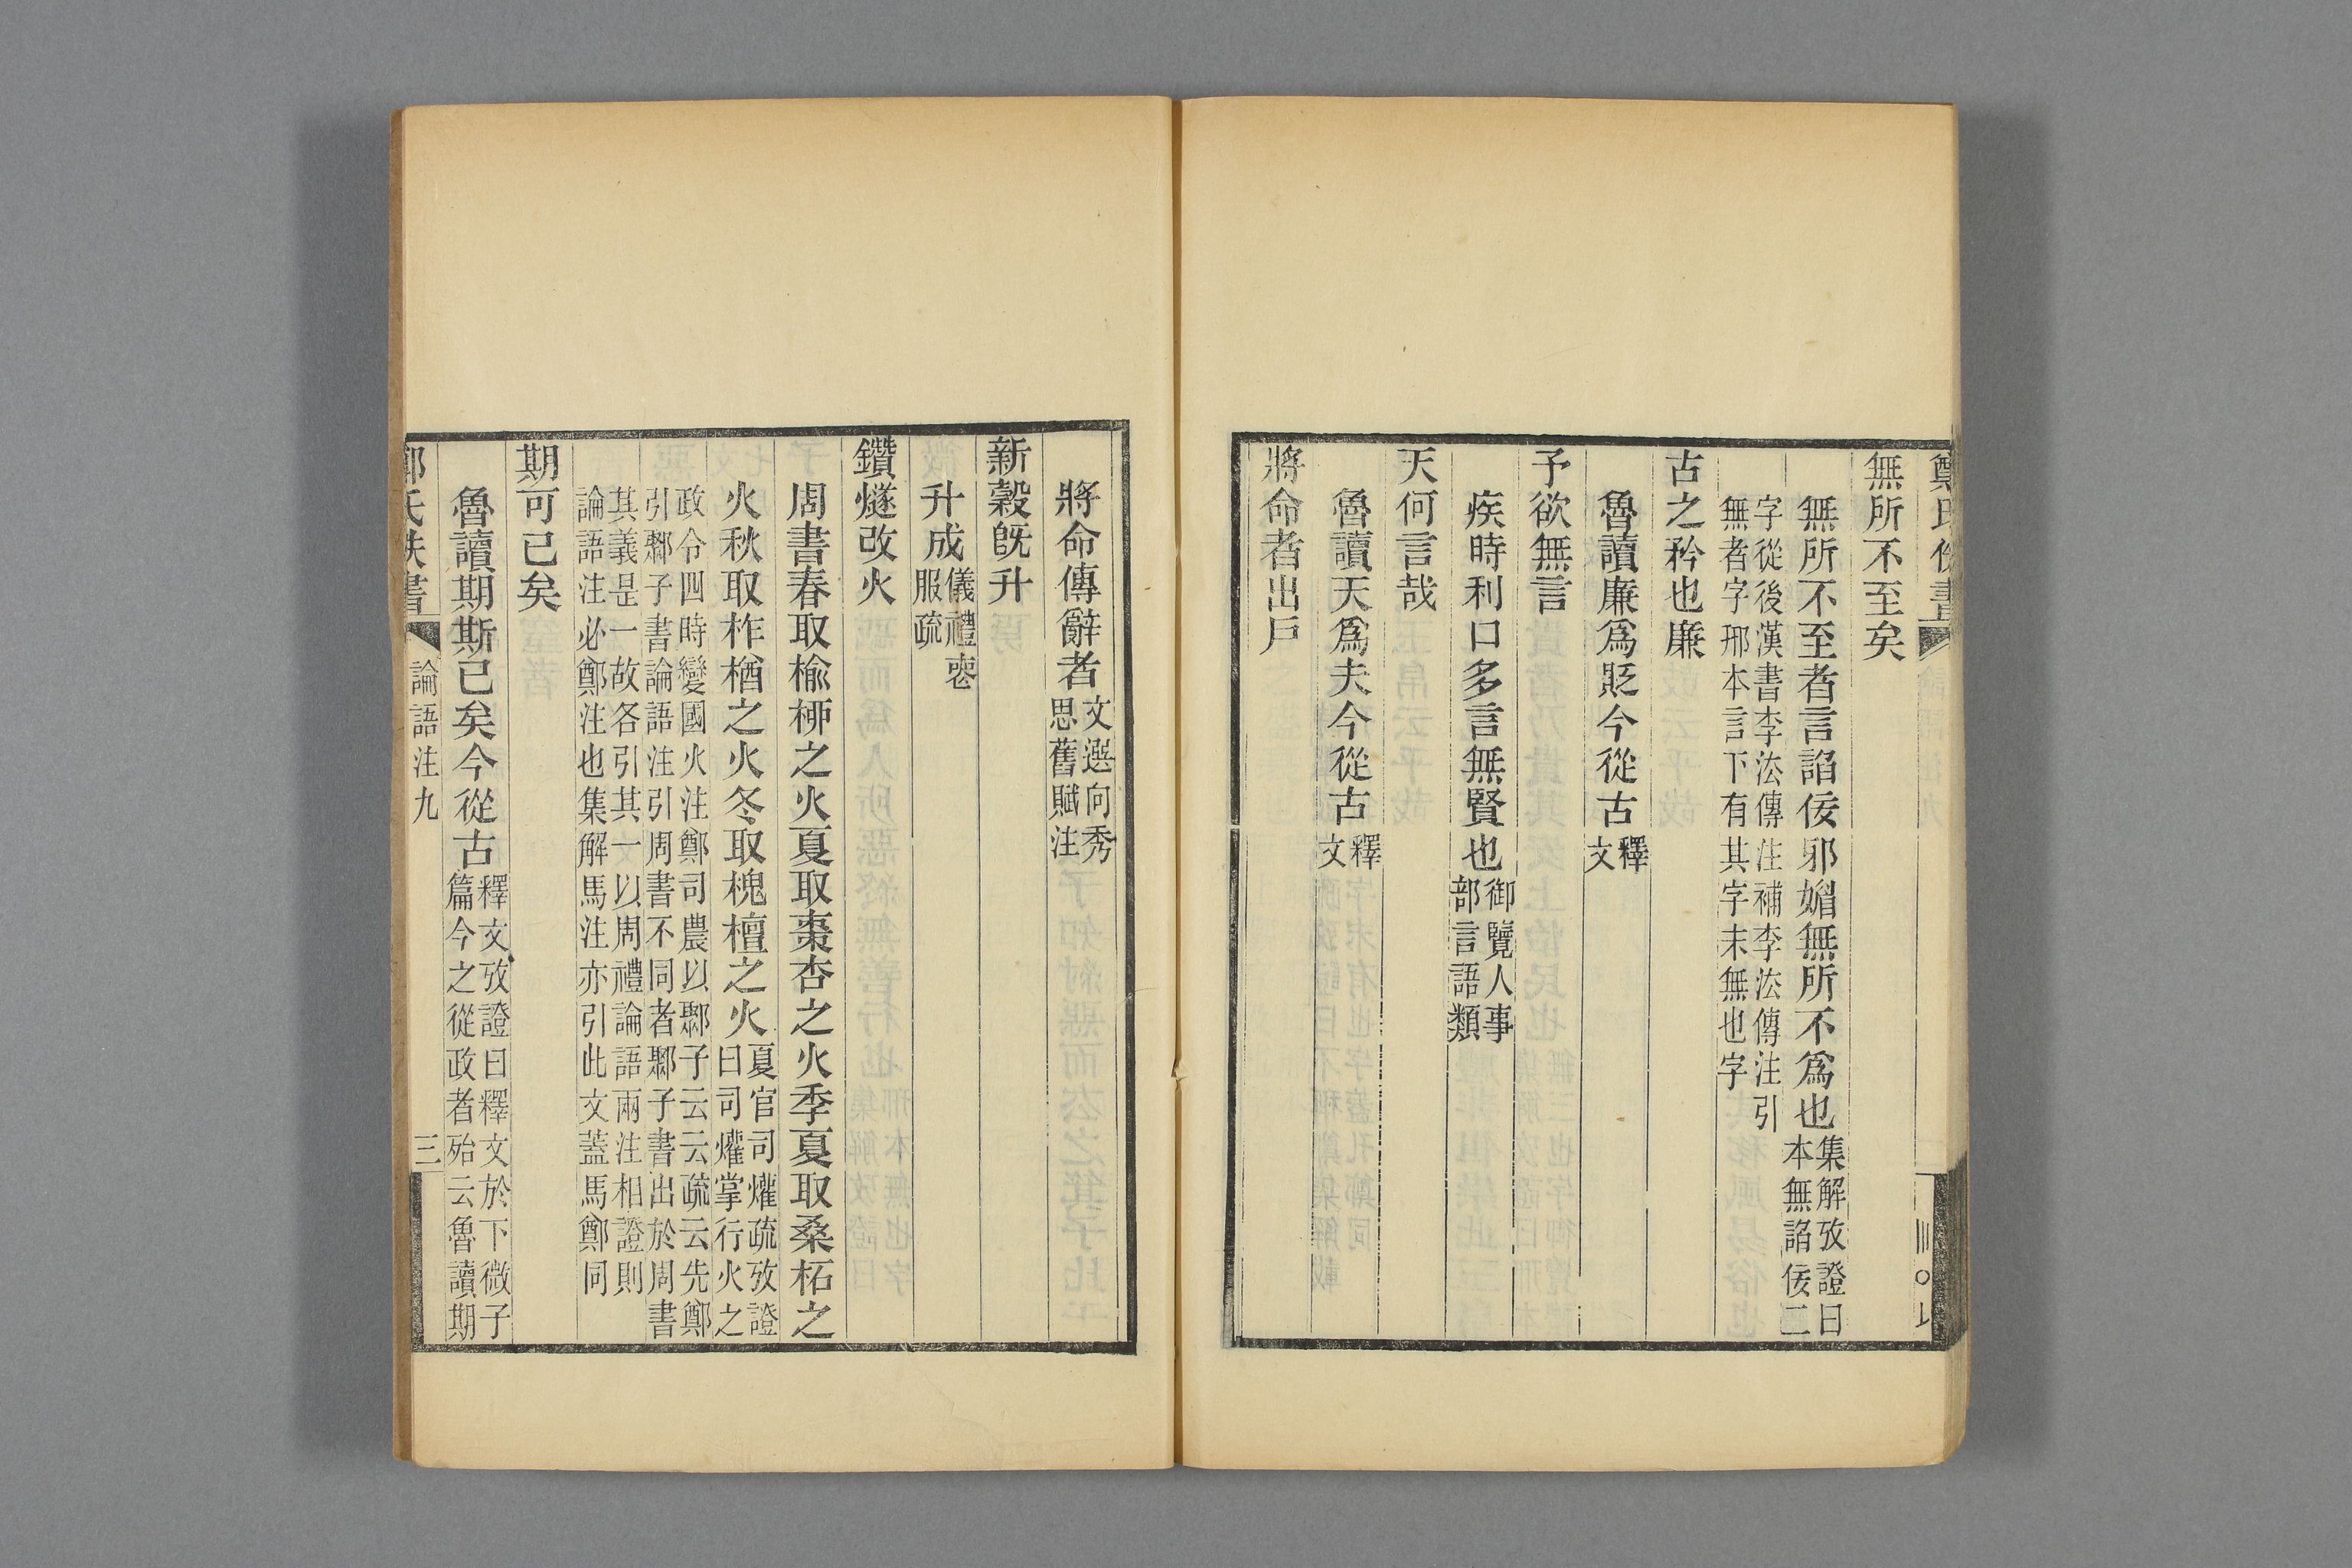 無所不至矣
無所不至者言諂佞邪媚無所不爲也集解攷證曰
本無諂佞二
字從後漢書李法傳注補李法傳注引
無者字邢本言下有其字未無也字
古之矜也廉
魯讀廉爲貶今從古釋
文
予欲無言
疾時利口多言無賢也御覽人事
部言語類
天何言哉
魯讀天爲夫今從古釋
文
將命者出戶
將命傳辭者文選向秀
思舊賦注
新榖旣升
升成儀禮喪
服疏
鑽燧改火
周書春取榆桺之火夏取棗杏之火季夏取桑柘之
火秋取柞楢之火冬取槐檀之火夏官司爟疏攷證
曰司爟掌行火之
政令四時變國火注鄭司農以鄹子云云疏云先鄭
引鄹子書論語注引周書不同者鄹子書出於周書
其義是一故各引其一以周禮論語兩注相證則
論語注必鄭注也集解馬注亦引此文蓋馬鄭同
期可已矣
魯讀期斯已矣今從古釋文攷證曰釋文於下微子
篇今之從政者殆云魯讀期
氏佚書
論語注九
三